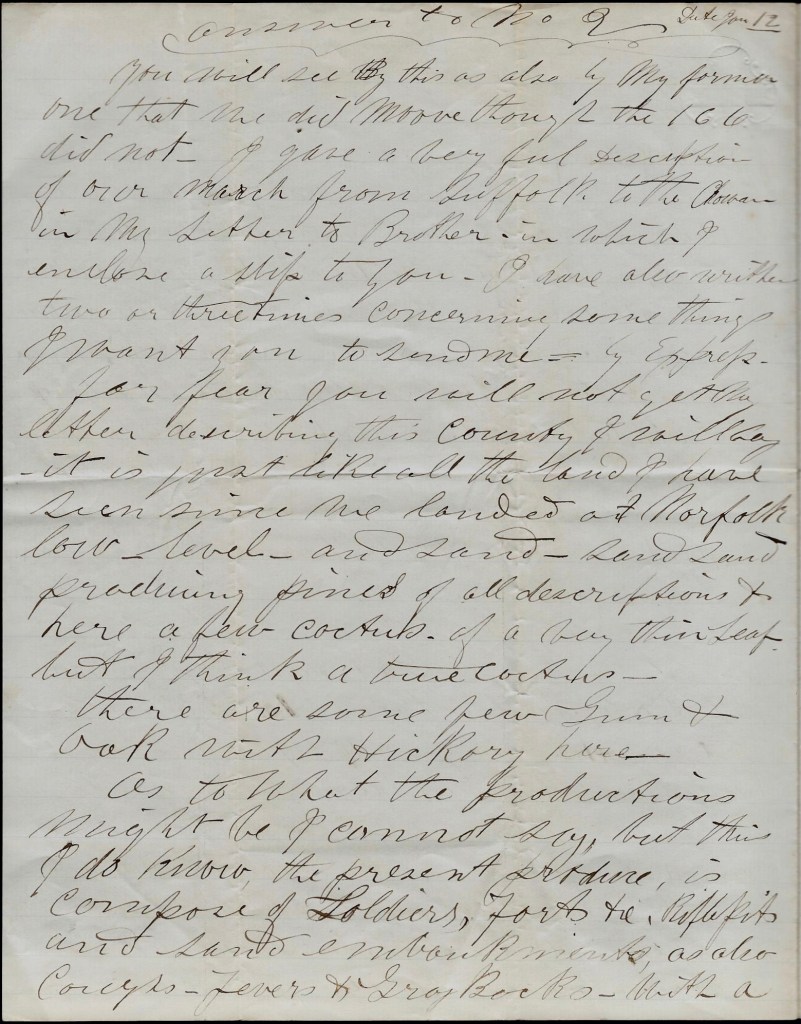 answer to No 9 Date Jan 12
You will see by this as also by My former
one that we did moove though the 166
did not - I gave a very ful description
of our march from Suffolk to the Chowan
in My Letter to Brother - in which I
enclose a slip to you - I have also written
two or three times concerning some things
I want you to send me = by Express -
for fear you will not get My
letter describing this county I will say
- it is just like all the land I have
seen since we landed at Norfolk
low - level - and sand - sand sand
producing pines of all descriptions &
here a few coctus - of a very thin Leaf -
but I think a true coctus -
there are some few Gum &
Oak with Hickory here -
As to what the productions
might be I cannot say, but this
I do Know, the present produce, is
compose of Soldiers, Forts &c. Riflepits
and sand embankments, as also
Coughs - Fevers & Gray Backs - With a